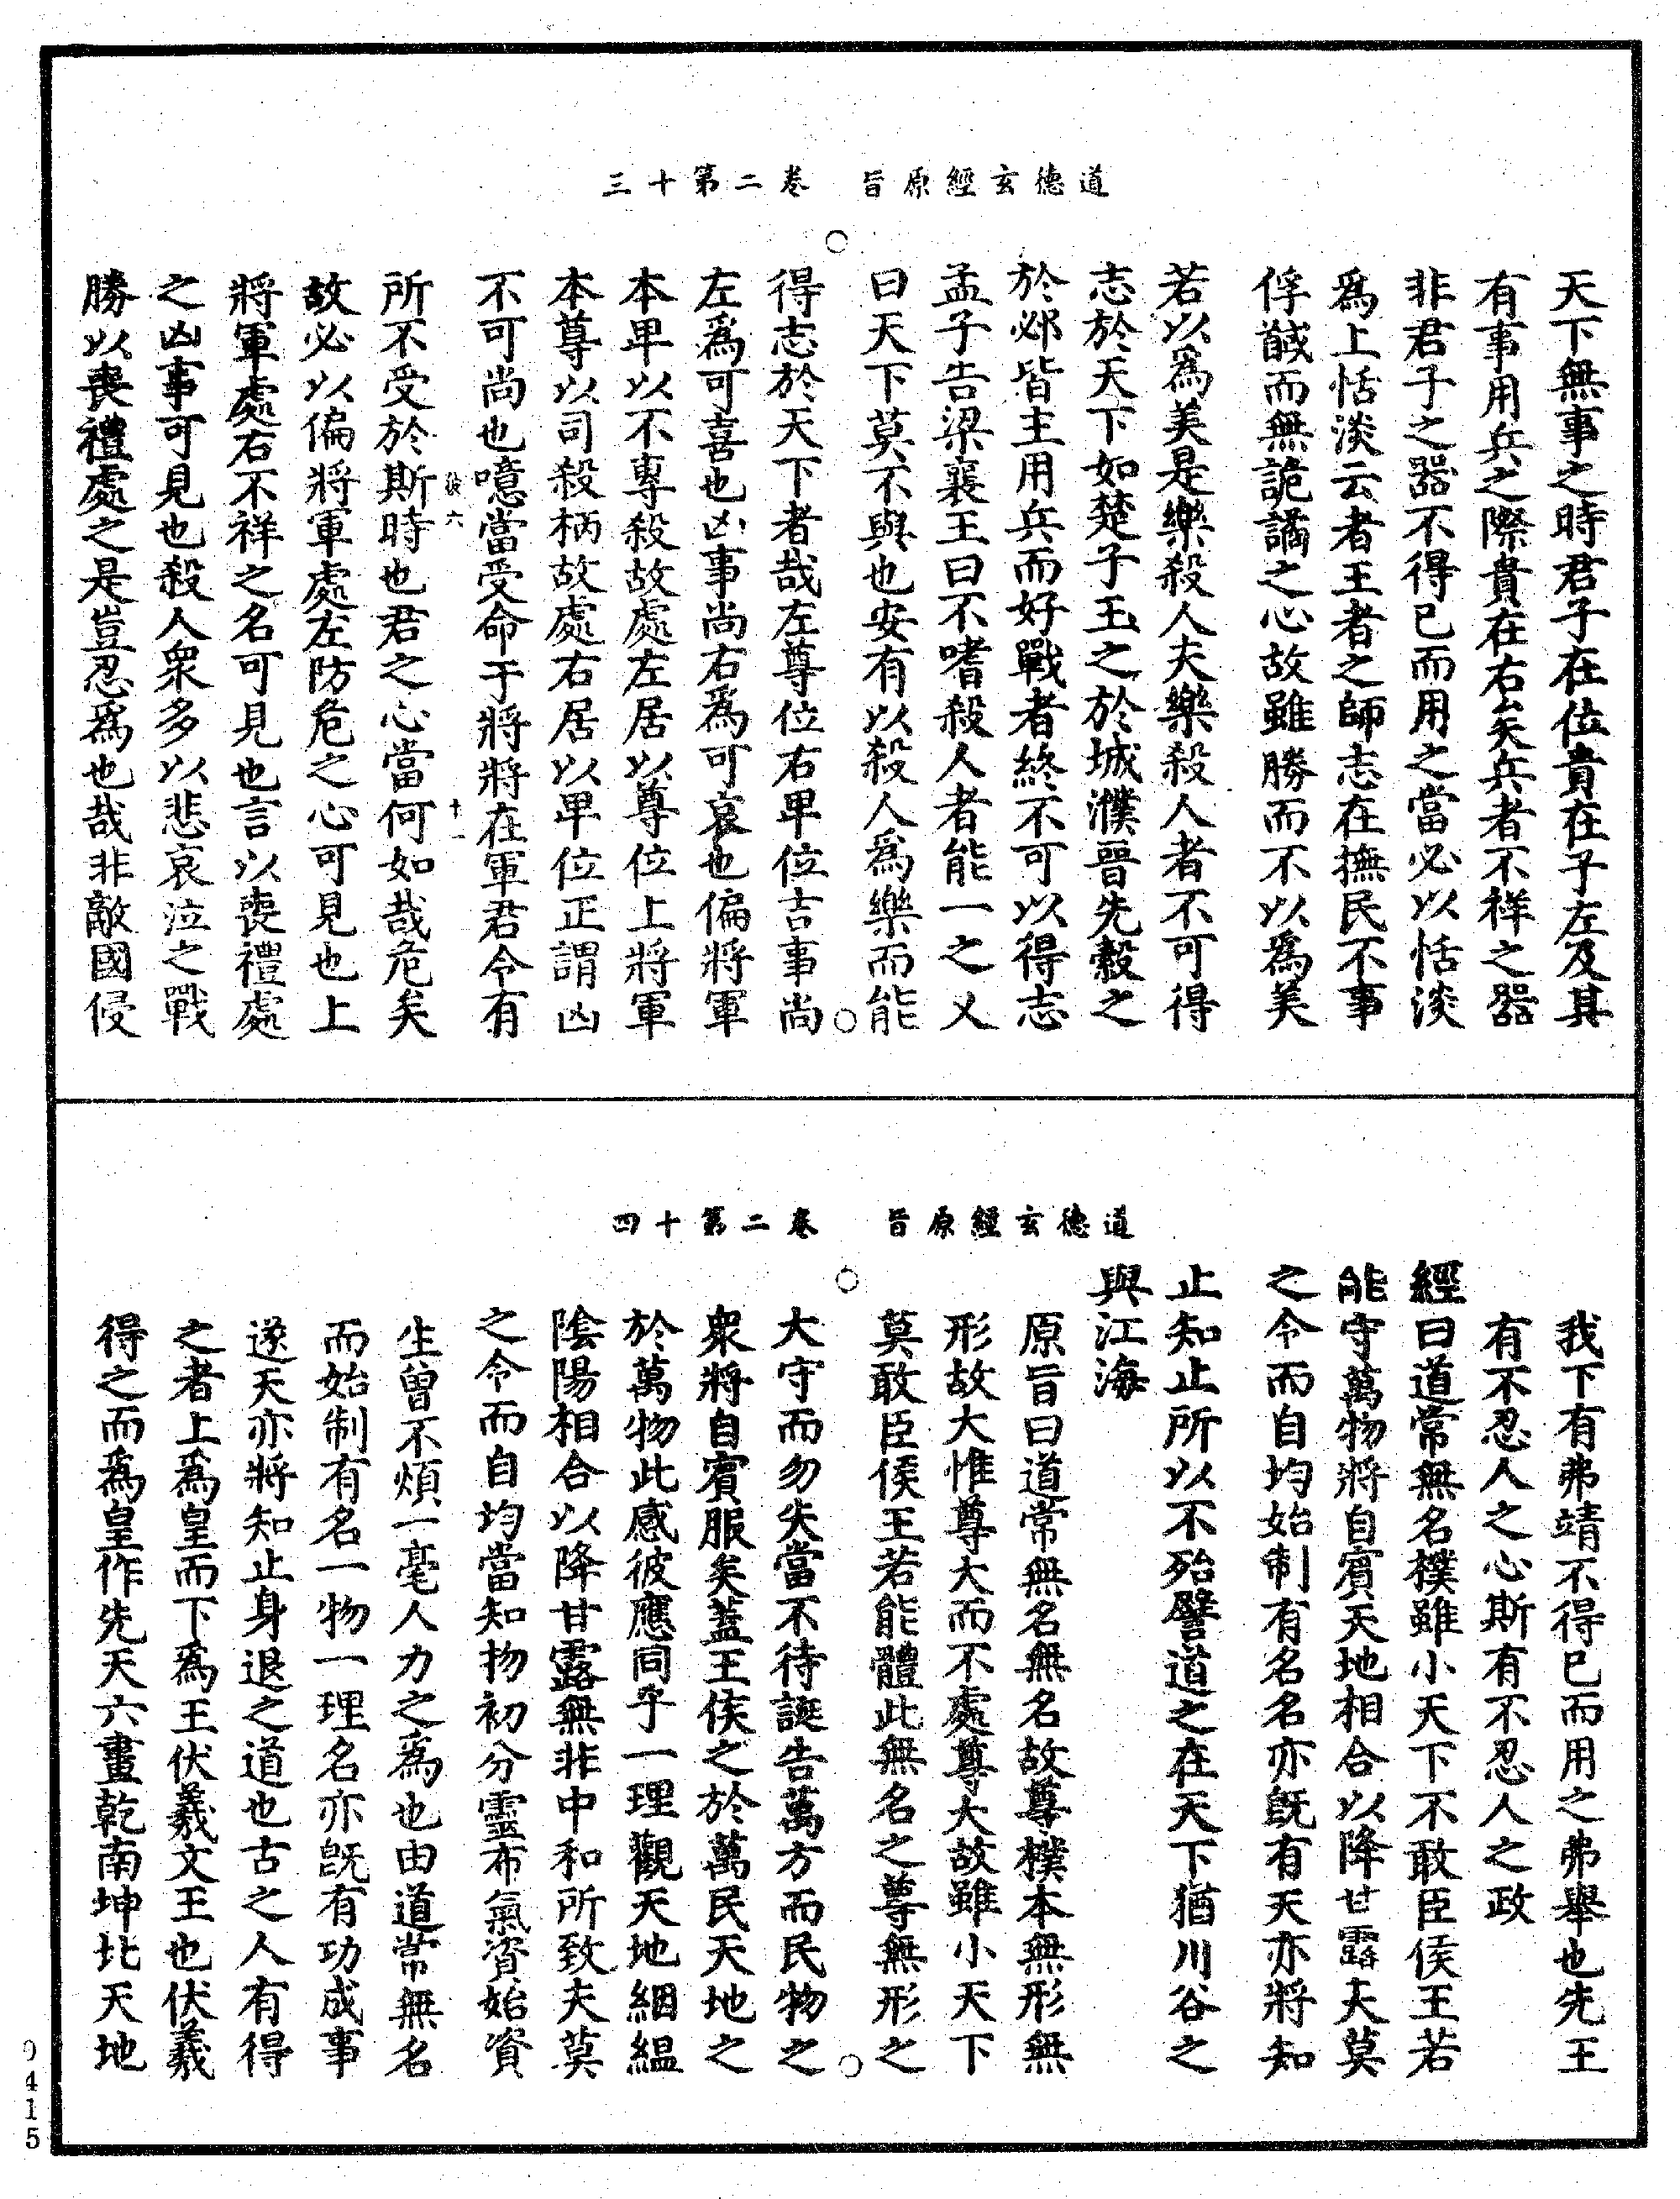 道德玄經原旨　卷二第十三
天下無事之時君子在位貴在子左及其
有事用兵之際貴在右矣兵者不祥之器
非君子之器不得已而用之當必以恬淡
爲上恬淡云者王者之師志在撫民不事
俘馘而無詭譎之心故雖勝而不以爲美
若以爲美是樂殺人夫樂殺人者不可得
志於天下如楚子玉之於城濮晉先縠之
於邲皆主用兵而好戰者終不可以得志
孟子告梁襄王曰不嗜殺人者能一之又
曰天下莫不與也安有以殺人爲樂而能
得志於天下者哉左尊位右卑位吉事尚
左爲可喜也凶事尚右爲可哀也偏將軍
本卑以不專殺故處左居以尊位上將軍
本尊以司殺柄故處右居以卑位正謂凶
不可尚也噫當受命于將將在軍君令有
六
十一
所不受於斯時也君之心當何如哉危矣
故必以偏將軍處左防危之心可見也上
將軍處右不祥之名可見也言以喪禮處
之凶事可見也殺人衆多以悲哀泣之戰
勝以喪禮處之是豈忍爲也哉非敵國侵
道德玄經原旨　卷二第十四
我下有弗靖不得已而用之弗舉也先王
有不忍人之心斯有不忍人之政
經曰道常無名樸雖小天下不敢臣侯王若
能守萬物將自賓天地相合以降甘露夫莫
之令而自均始制有名名亦旣有天亦將知
止知止所以不殆譬道之在天下猶川谷之
與江海
原旨曰道常無名無名故尊樸本無形無
形故大惟尊大而不處尊大故雖小天下
莫敢臣侯王若能體此無名之尊無形之
大守而勿失當不待誕告萬方而民物之
衆將自賓服矣蓋王侯之於萬民天地之
於萬物此感彼應同乎一理觀天地絪縕
陰陽相合以降甘露無非中和所致夫莫
之令而自均當知物初分靈布氣資始資
生曾不煩一毫人力之爲也由道常無名
而始制有名一物一理名亦旣有功成事
遂天亦將知止身退之道也古之人有得
之者上爲皇而下爲王伏羲文王也伏羲
得之而爲皇作先天六畫乾南坤北天地
0415